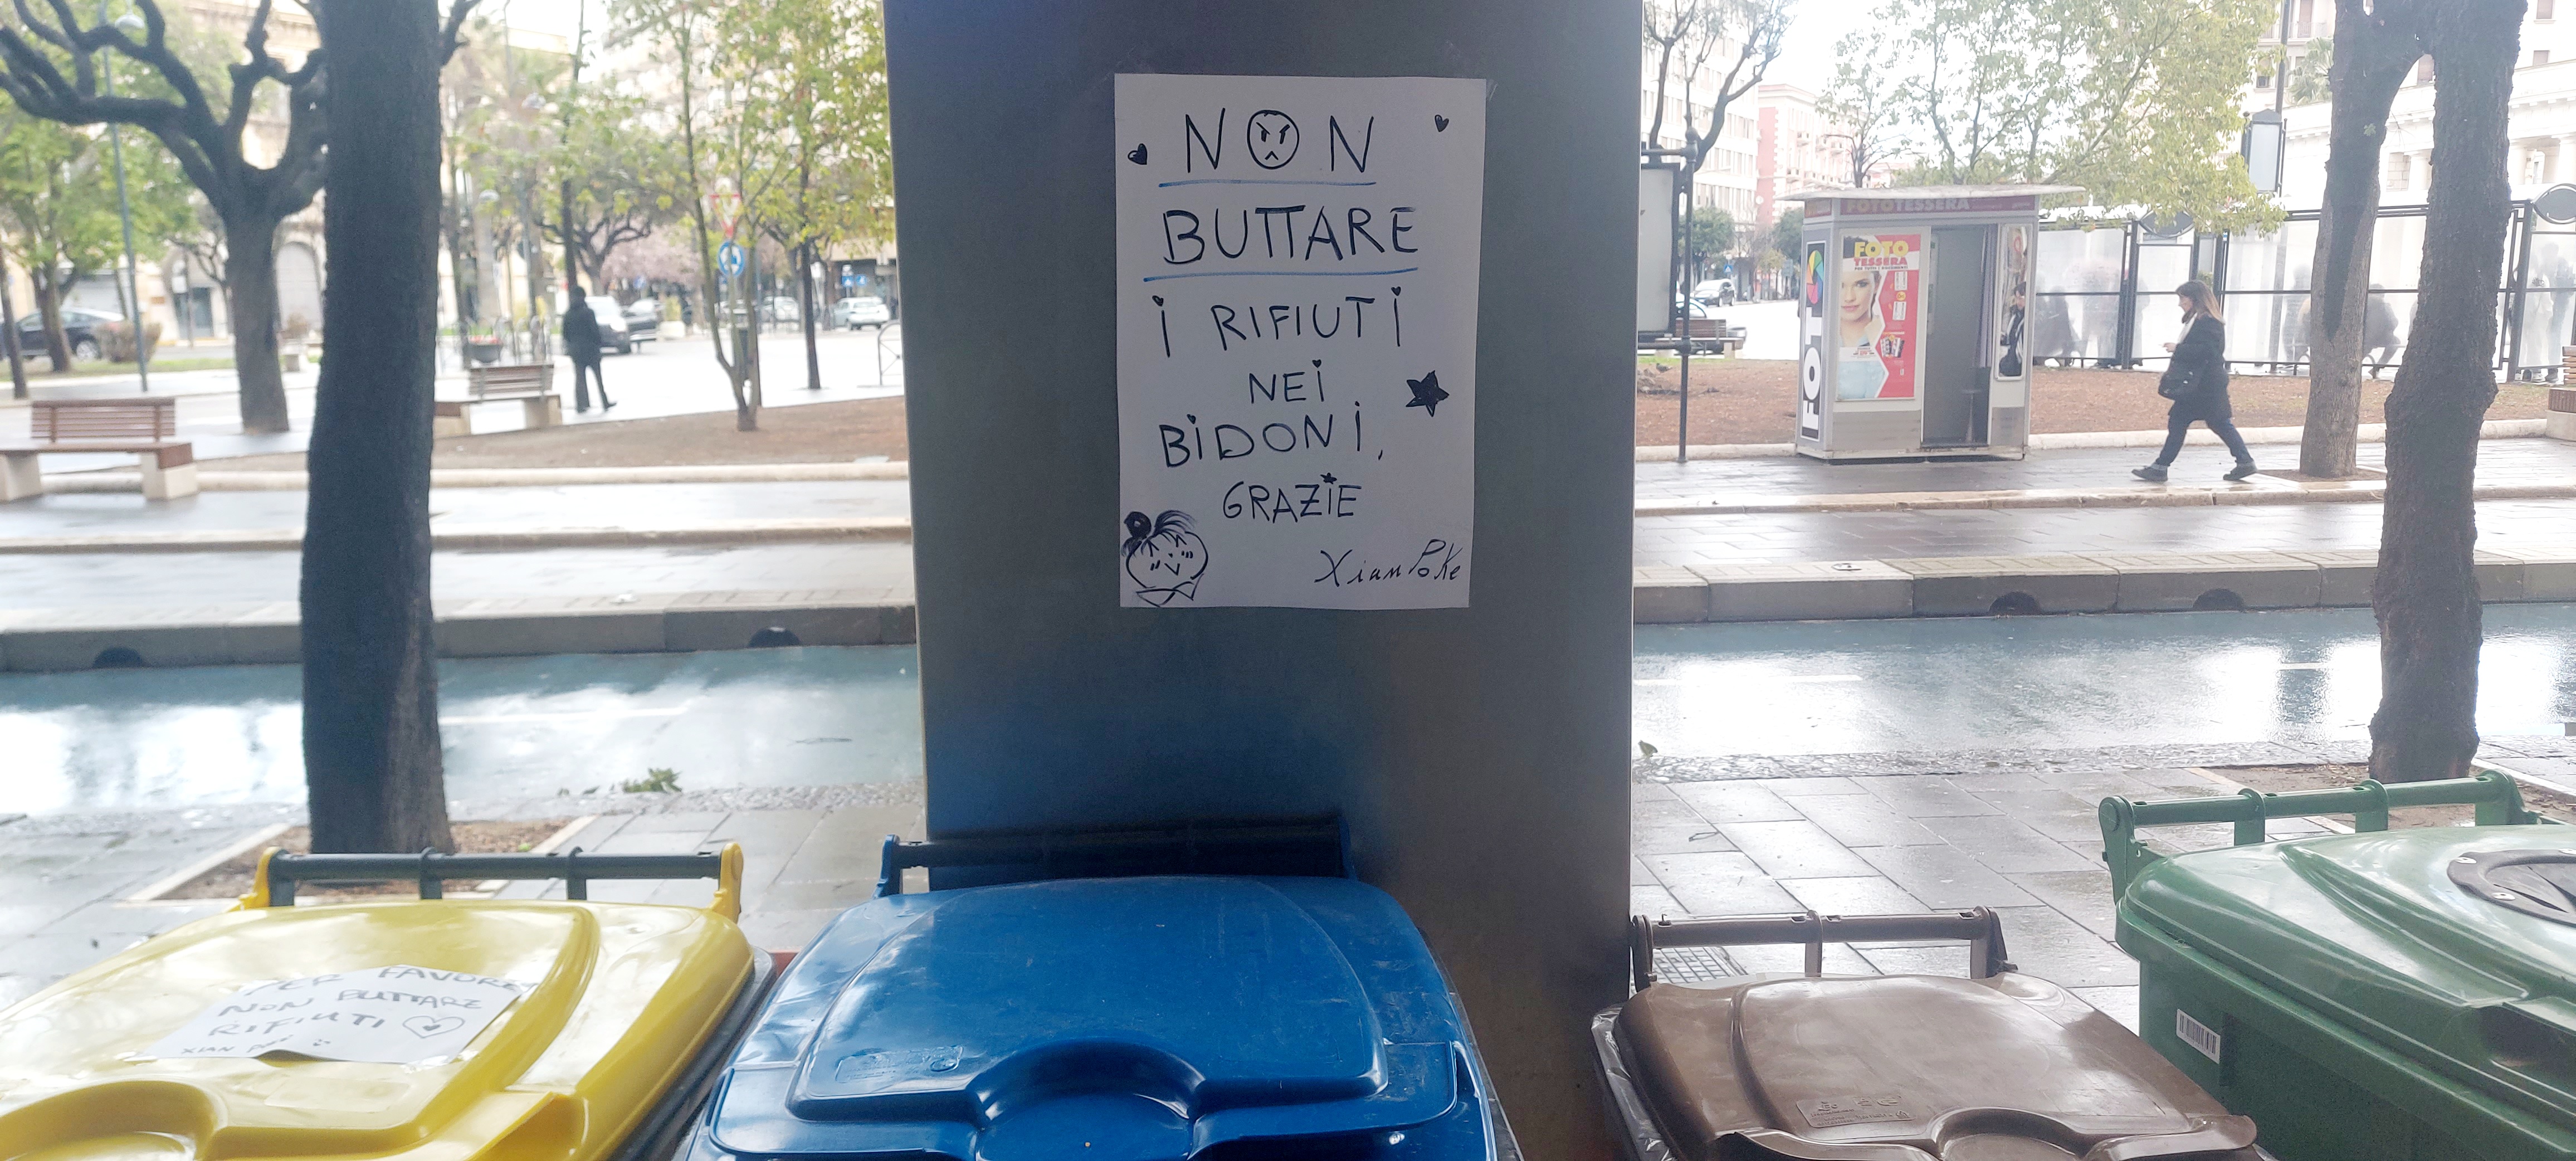 NON
BUTTARE
I RIFIUTI
NEI
BIDONI,
GRAZIE
XianPoke
PER FAVORE
NON BUTTARE
RIFIUTI
XIAN
FOTOTESSERA
FOTO
TESSERA